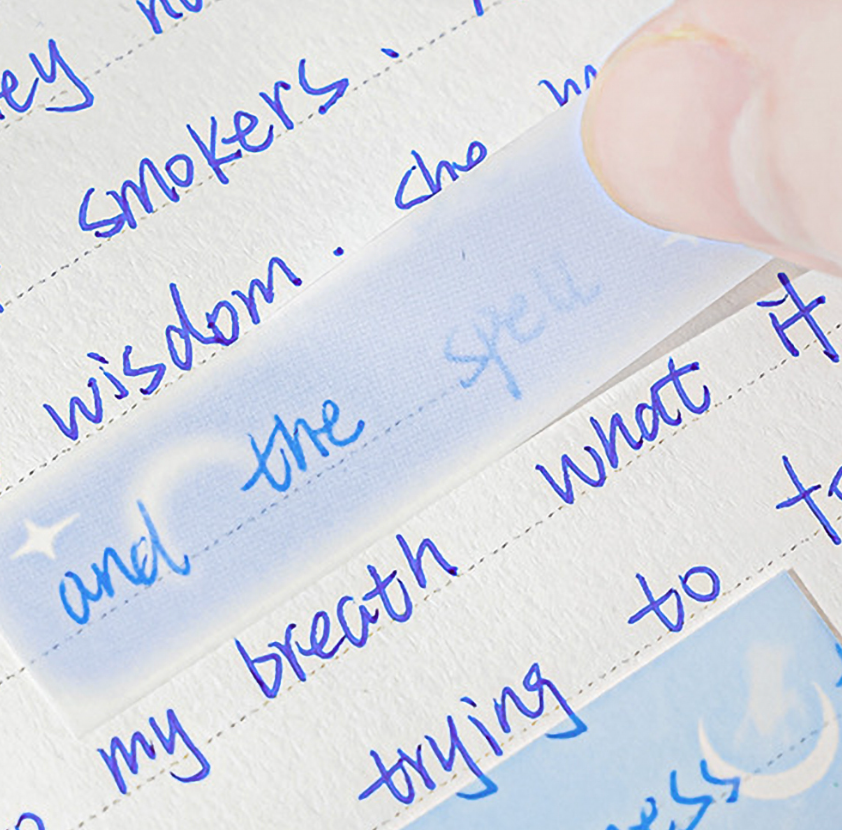 smokers.
wisdom. she
and the spell
my breath what it
trying to